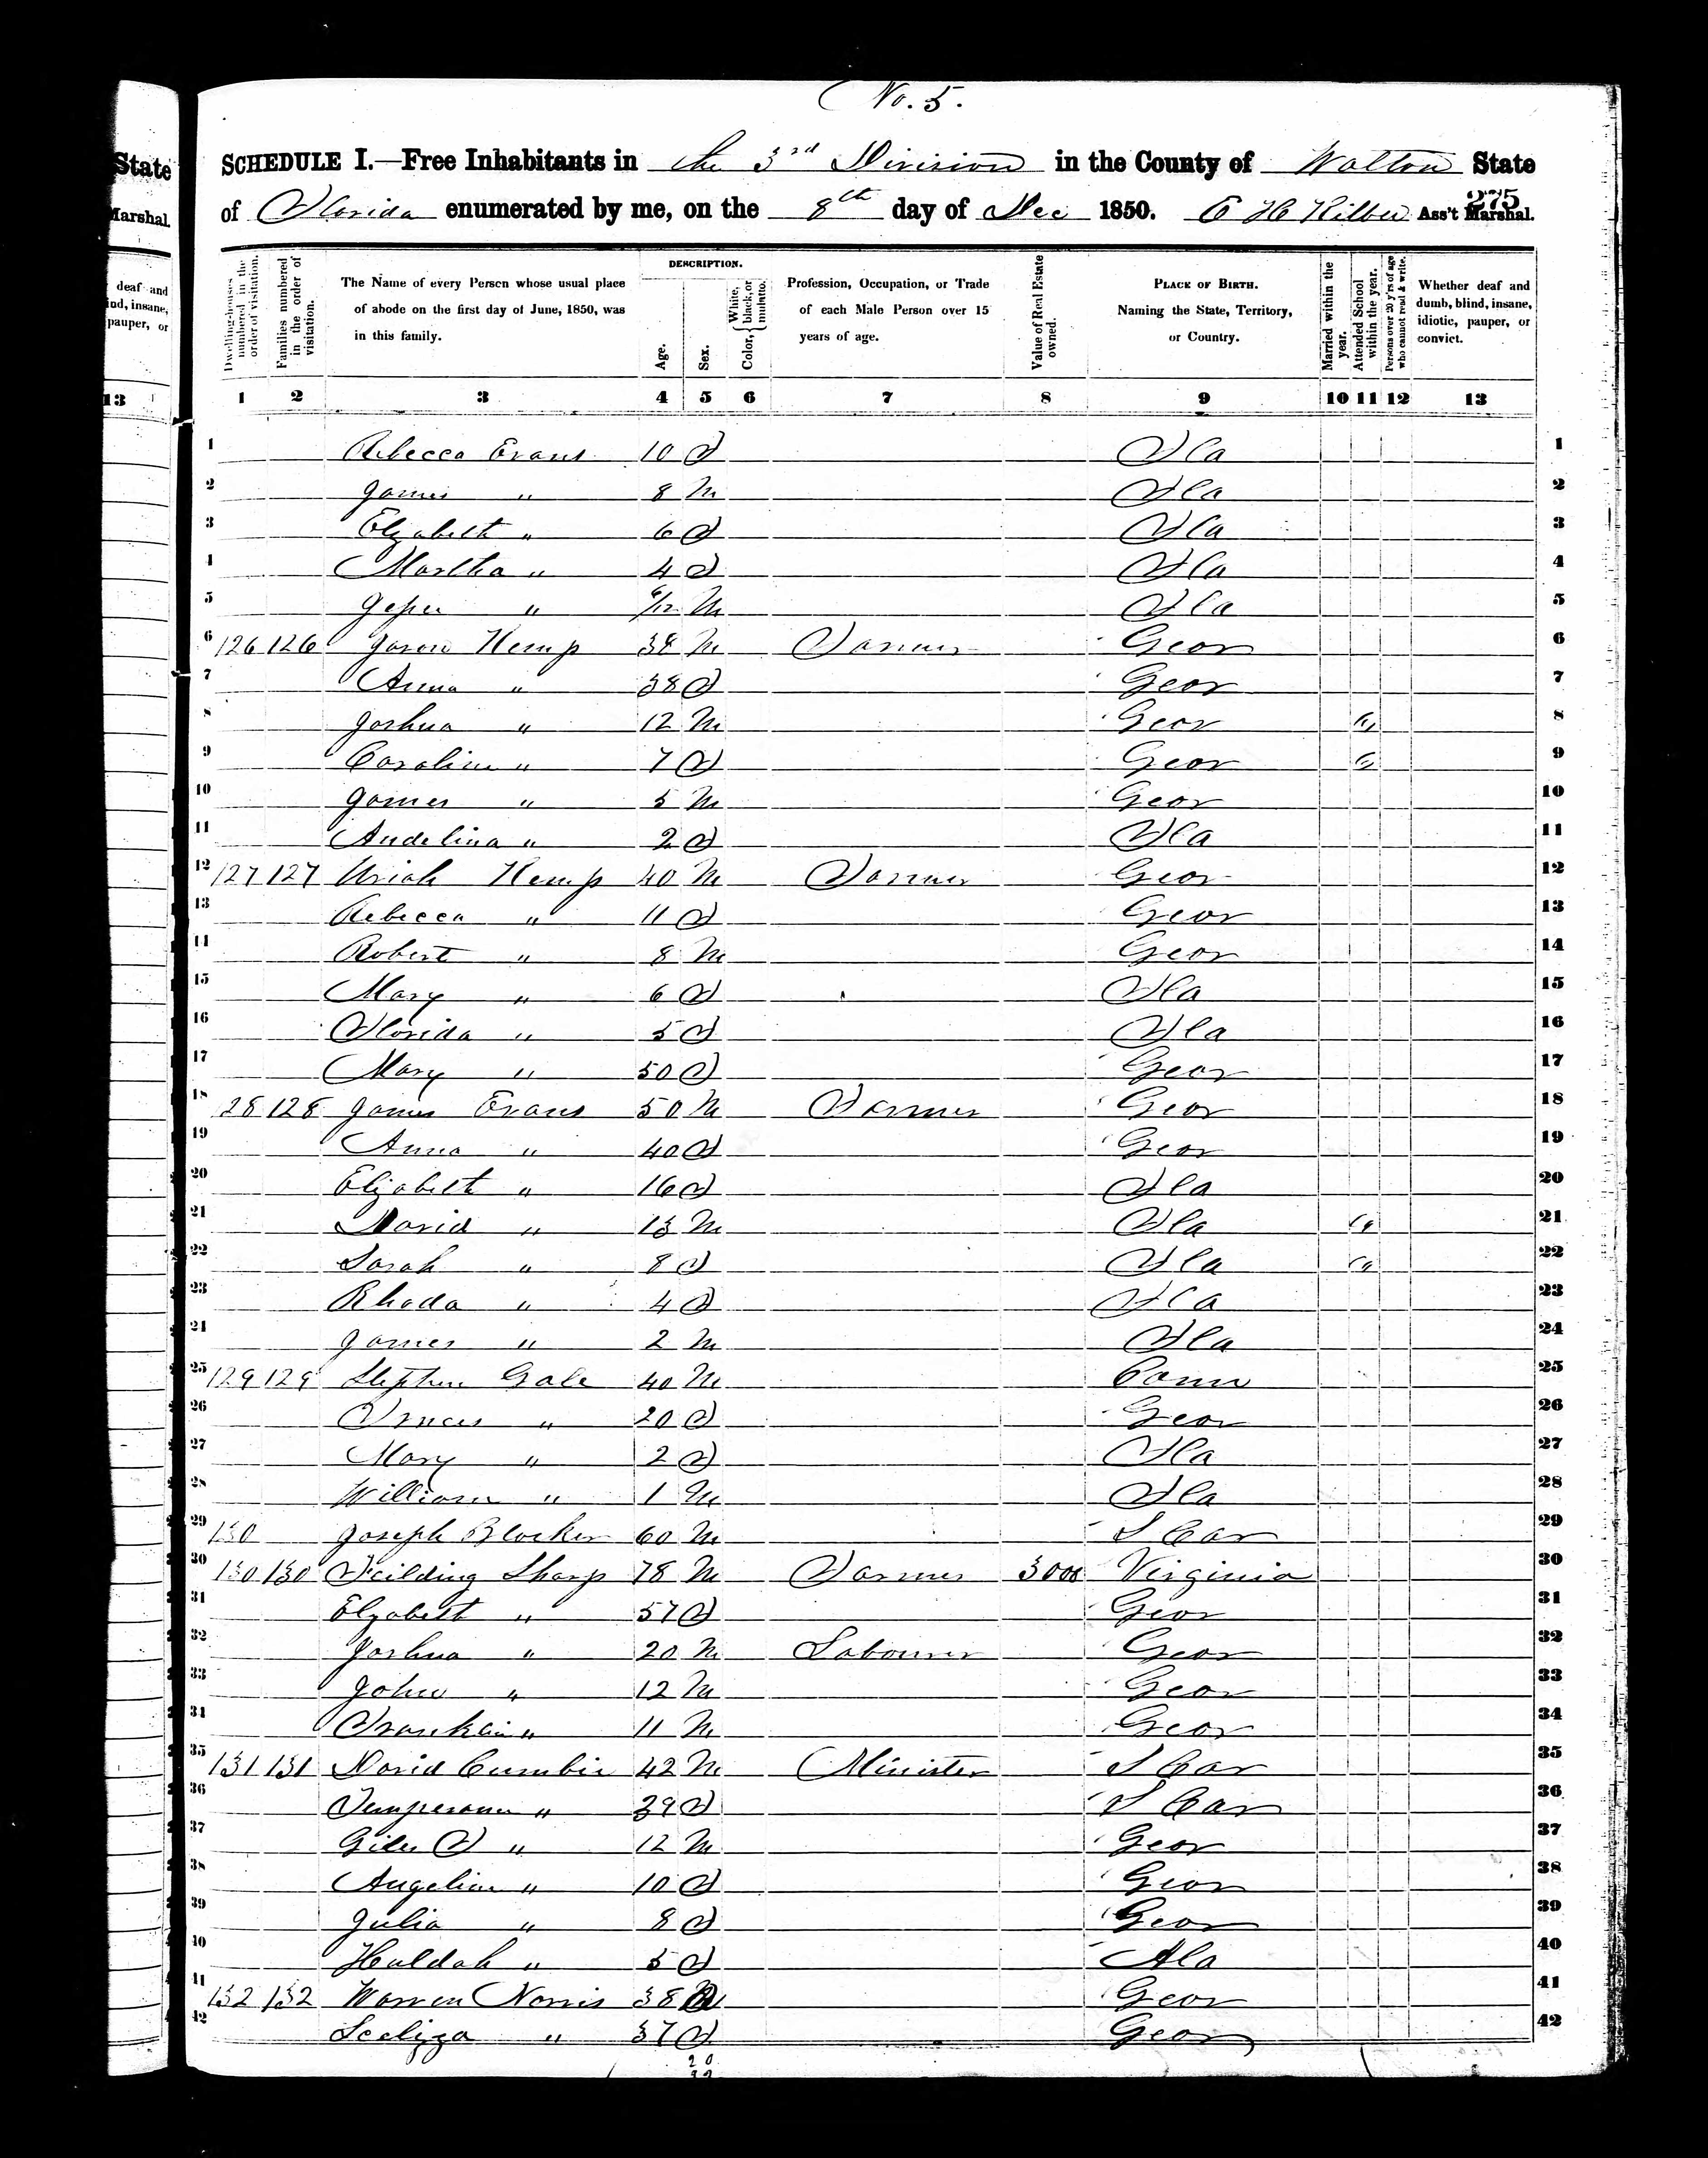 No. 5.
State
SCHEDULE I.—Free Inhabitants in the 3rd Division in the County of Walton State
Marshal.
of Florida enumerated by me, on the 8th day of Dec 1850. Ass't Marshal.
275
deaf and
ind, insane,
pauper, or
13
Dwelling-houses numbered in the order of visitation.
Families numbered in the order of visitation.
The Name of every Person whose usual place of abode on the first day of June, 1850, was in this family.
DESCRIPTION.
Age.
Sex.
White, black, or mulatto.
Color,
Profession, Occupation, or Trade of each Male Person over 15 years of age.
Value of Real Estate owned.
PLACE OF BIRTH. Naming the State, Territory, or Country.
Married within the year.
Attended School within the year.
Persons over 20 y'rs of age who cannot read & write.
Whether deaf and dumb, blind, insane, idiotic, pauper, or convict.
1 2 3 4 5 6 7 8 9 10 11 12 13
1 Rebecca Evans 10 F Fla 1
2 James " 8 M Fla 2
3 Elizabeth " 6 F Fla 3
4 Martha " 4 F Fla 4
5 " 6/12 M Fla 5
6 126 126 Kemp 38 M Farmer Geor 6
7 Anna " 38 F Geor 7
8 Joshua " 12 M Geor " 8
9 Caroline " 7 F Geor " 9
10 James " 5 M Geor 10
11 Andelina " 2 F Fla 11
12 127 127 Uriah Kemp 40 M Farmer Geor 12
13 Rebecca " 11 F Geor 13
14 Robert " 8 M Geor 14
15 Mary " 6 F Fla 15
16 Florida " 5 F Fla 16
17 Mary " 50 F Geor 17
18 128 128 James Evans 50 M Farmer Geor 18
19 Anna " 40 F Geor 19
20 Elizabeth " 16 F Fla 20
21 David " 13 M Fla " 21
22 Sarah " 8 F Fla " 22
23 Rhoda " 4 F Fla 23
24 James " 2 M Fla 24
25 129 129 Stephen Gale 40 M Conn 25
26 " 20 F Geor 26
27 Mary " 2 F Fla 27
28 William " 1 M Fla 28
29 130 Joseph Blocker 60 M S Car 29
30 130 130 Feilding Sharp 78 M Farmer 3000 Virginia 30
31 Elzabeth " 57 F Geor 31
32 Joshua " 20 M Labourer Geor 32
33 John " 12 M Geor 33
34 Franklin " 11 M Geor 34
35 131 131 David Cumbie 42 M Minister S Car 35
36 " 39 F S Car 36
37 Giles F " 12 M Geor 37
38 Angeline " 10 F Geor 38
39 Julia " 8 F Geor 39
40 Huldah " 5 F Ala 40
41 132 132 Warren Norris 38 M Geor 41
42 " 37 F Geor 42
20